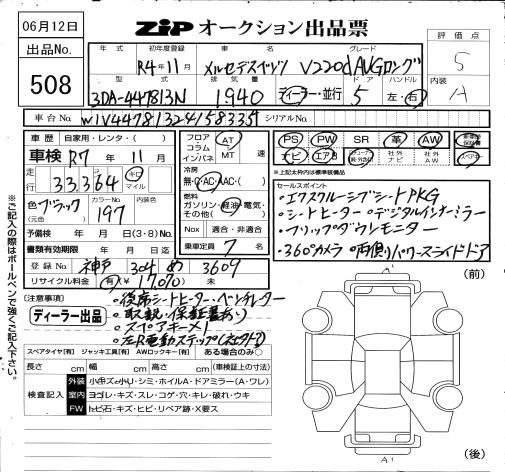 06月12日
ZIP オークション出品票
評価点
出品No.
508
年式 初年度登録 車名 グレード
R4年11月 メルセデスベンツ V220d AVGロング
5
内装
A
型式 排気量 ドア ハンドル
3DA-447813N 1940 ディーラー・並行 5 左・右
車台No. W1V44781324158335 シリアルNo.
車歴 自家用・レンタ・( )
車検 R7年11月
走行 33,364 キロ マイル
色 ブラック カラーNo. 197
(元色)
予備検 年 月 日(3・8)No.
書類有効期限 年 月 日迄
登録No. 神戸 304 め 3609
リサイクル料金 有(¥17,070) 未
フロア コラム インパネ AT MT 速
冷房
無・C・AC・AAC・( )
燃料
ガソリン・軽油・電気・
その他( )
Nox 適合・非適合
乗車定員 7 名
PS PW SR 革 AW
ナビ エアB 社外ナビ 社外AW
※上記太枠内は標準装備品
セールスポイント
・エクスクルーシブシートPKG
・シートヒーター ・デジタルインナーミラー
・フリップダウンモニター
・360°カメラ ・両側パワースライドドア
(注意事項)
ディーラー出品
・後席シートヒーター・ベンチレーター
・取説・保証書あり
・スペアキー×1
スペアタイヤ[有] ジャッキ工具[有] AWロックキー[有] ある場合のみ○
長さ cm 幅 cm 高さ cm (車検証上の寸法)
検査記入
外装 小キズ・小U・シミ・ホイルA・ドアミラー(A・ワレ)
室内 ヨゴレ・キズ・スレ・コゲ・穴・キレ・破れ・ウキ
FW トビ石・キズ・ヒビ・リペア跡・X要ス
(前)
(後)
A1
※ご記入の際はボールペンで強くご記入下さい。